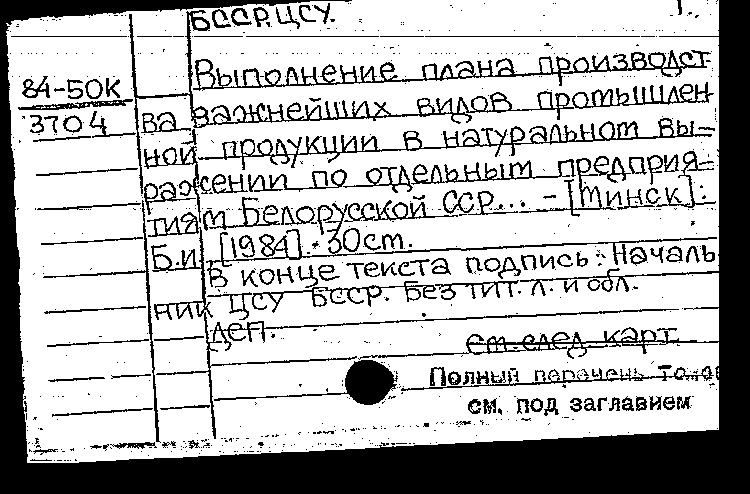 БССР. ЦСУ. 1.
84-50К
3704
Выполнение плана производст-
ва важнейших видов промышлен-
ной продукции в натуральном вы-
ражении по отдельным предприя-
тиям Белорусской ССР... - [Минск]:
Б.и., [1984]. - 30 cm.
В конце текста подпись: Началь-
ник ЦСУ БССР. Без тит. л. и обл.
ДСП.
см. след. карт.
Полный перечень томов
см. под заглавием